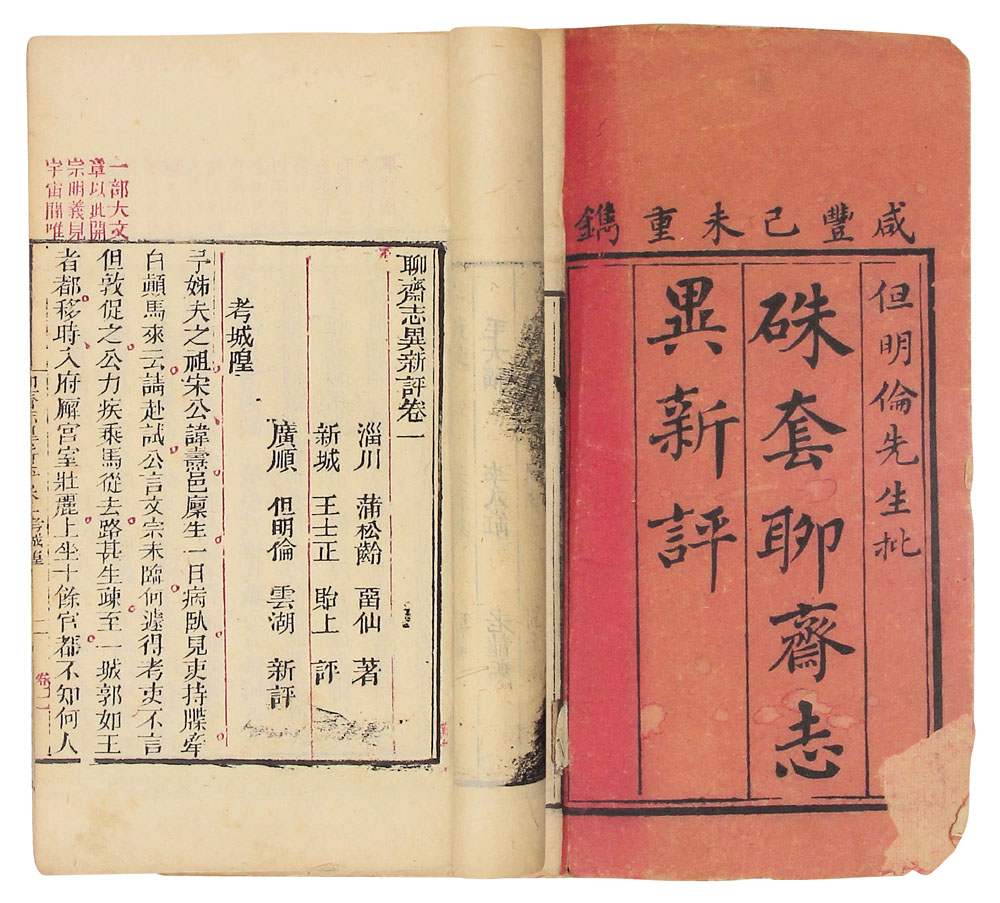 咸豐己未重鐫
但明倫先生批
硃套聊齋志
異新評
聊齋志異新評卷一
淄川 蒲松齡 畱仙 著
新城 王士正 貽上 評
廣順 但明倫 雲湖 新評
考城隍
予姊夫之祖宋公諱燾邑廩生一日病臥見吏持牒牽
白顛馬來云請赴試公言文宗未臨何遽得考吏不言
但敦促之公力疾乘馬從去路甚生疎至一城郭如王
者都移時入府廨宮室壯麗上坐十餘官都不知何人
一部大文
章以此開
宗明義見
宇宙間唯